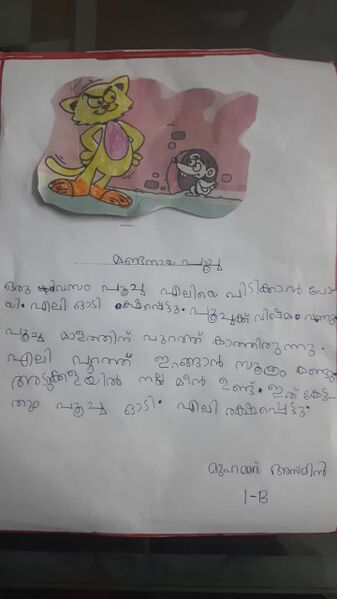 മണ്ടനായ പൂച്ച
ഒരു ദിവസം പൂച്ച എലിയെ പിടിക്കാൻ പോ
യി. എലി ഓടി രക്ഷപ്പെട്ടു. പൂച്ചക്ക് വിഷമം വന്നു
പൂച്ച മാളത്തിന് പുറത്ത് കാത്തിരുന്നു.
എലി പുറത്ത് ഇറങ്ങാൻ സൂത്രം കണ്ടു
അടുക്കളയിൽ നല്ല മീൻ ഉണ്ട്. ഇത് കേട്ട
തും പൂച്ച ഓടി. എലി രക്ഷപ്പെട്ടു.
മുഹമ്മദ് അസ്മിൻ
1-B